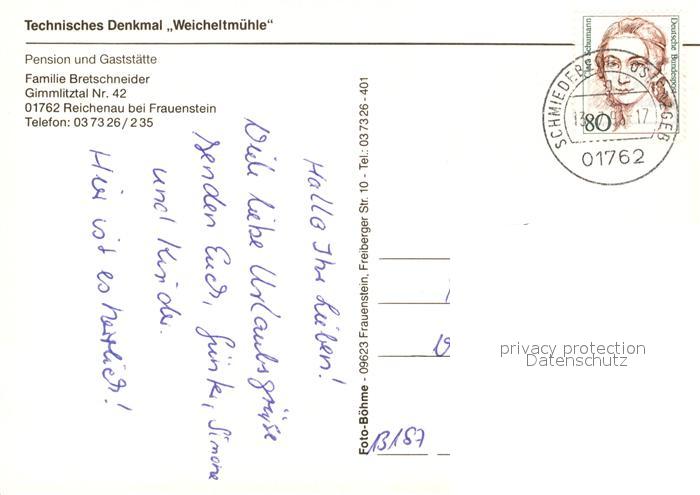 Technisches Denkmal „Weicheltmühle“
Pension und Gaststätte
Familie Bretschneider
Gimmlitztal Nr. 42
01762 Reichenau bei Frauenstein
Telefon: 03 73 26 / 2 35
Hallo Ihr Lieben!
Viele liebe Urlaubsgrüße
senden Euch, Günter, Simone
und Kinder.
Hier ist es herrlich!
Foto-Böhme - 09623 Frauenstein, Freiberger Str. 10 - Tel.: 03 73 26 - 401
Clara Schumann
Deutsche Bundespost
80
01762
B187
privacy protection
Datenschutz